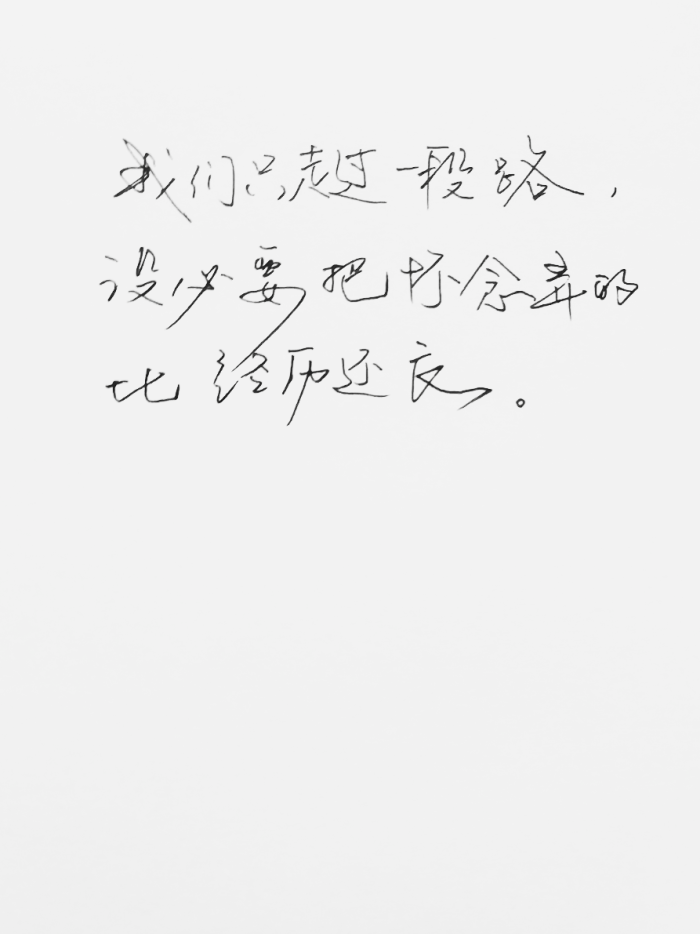 我们只走过一段路，
没必要把怀念弄的
比经历还长。